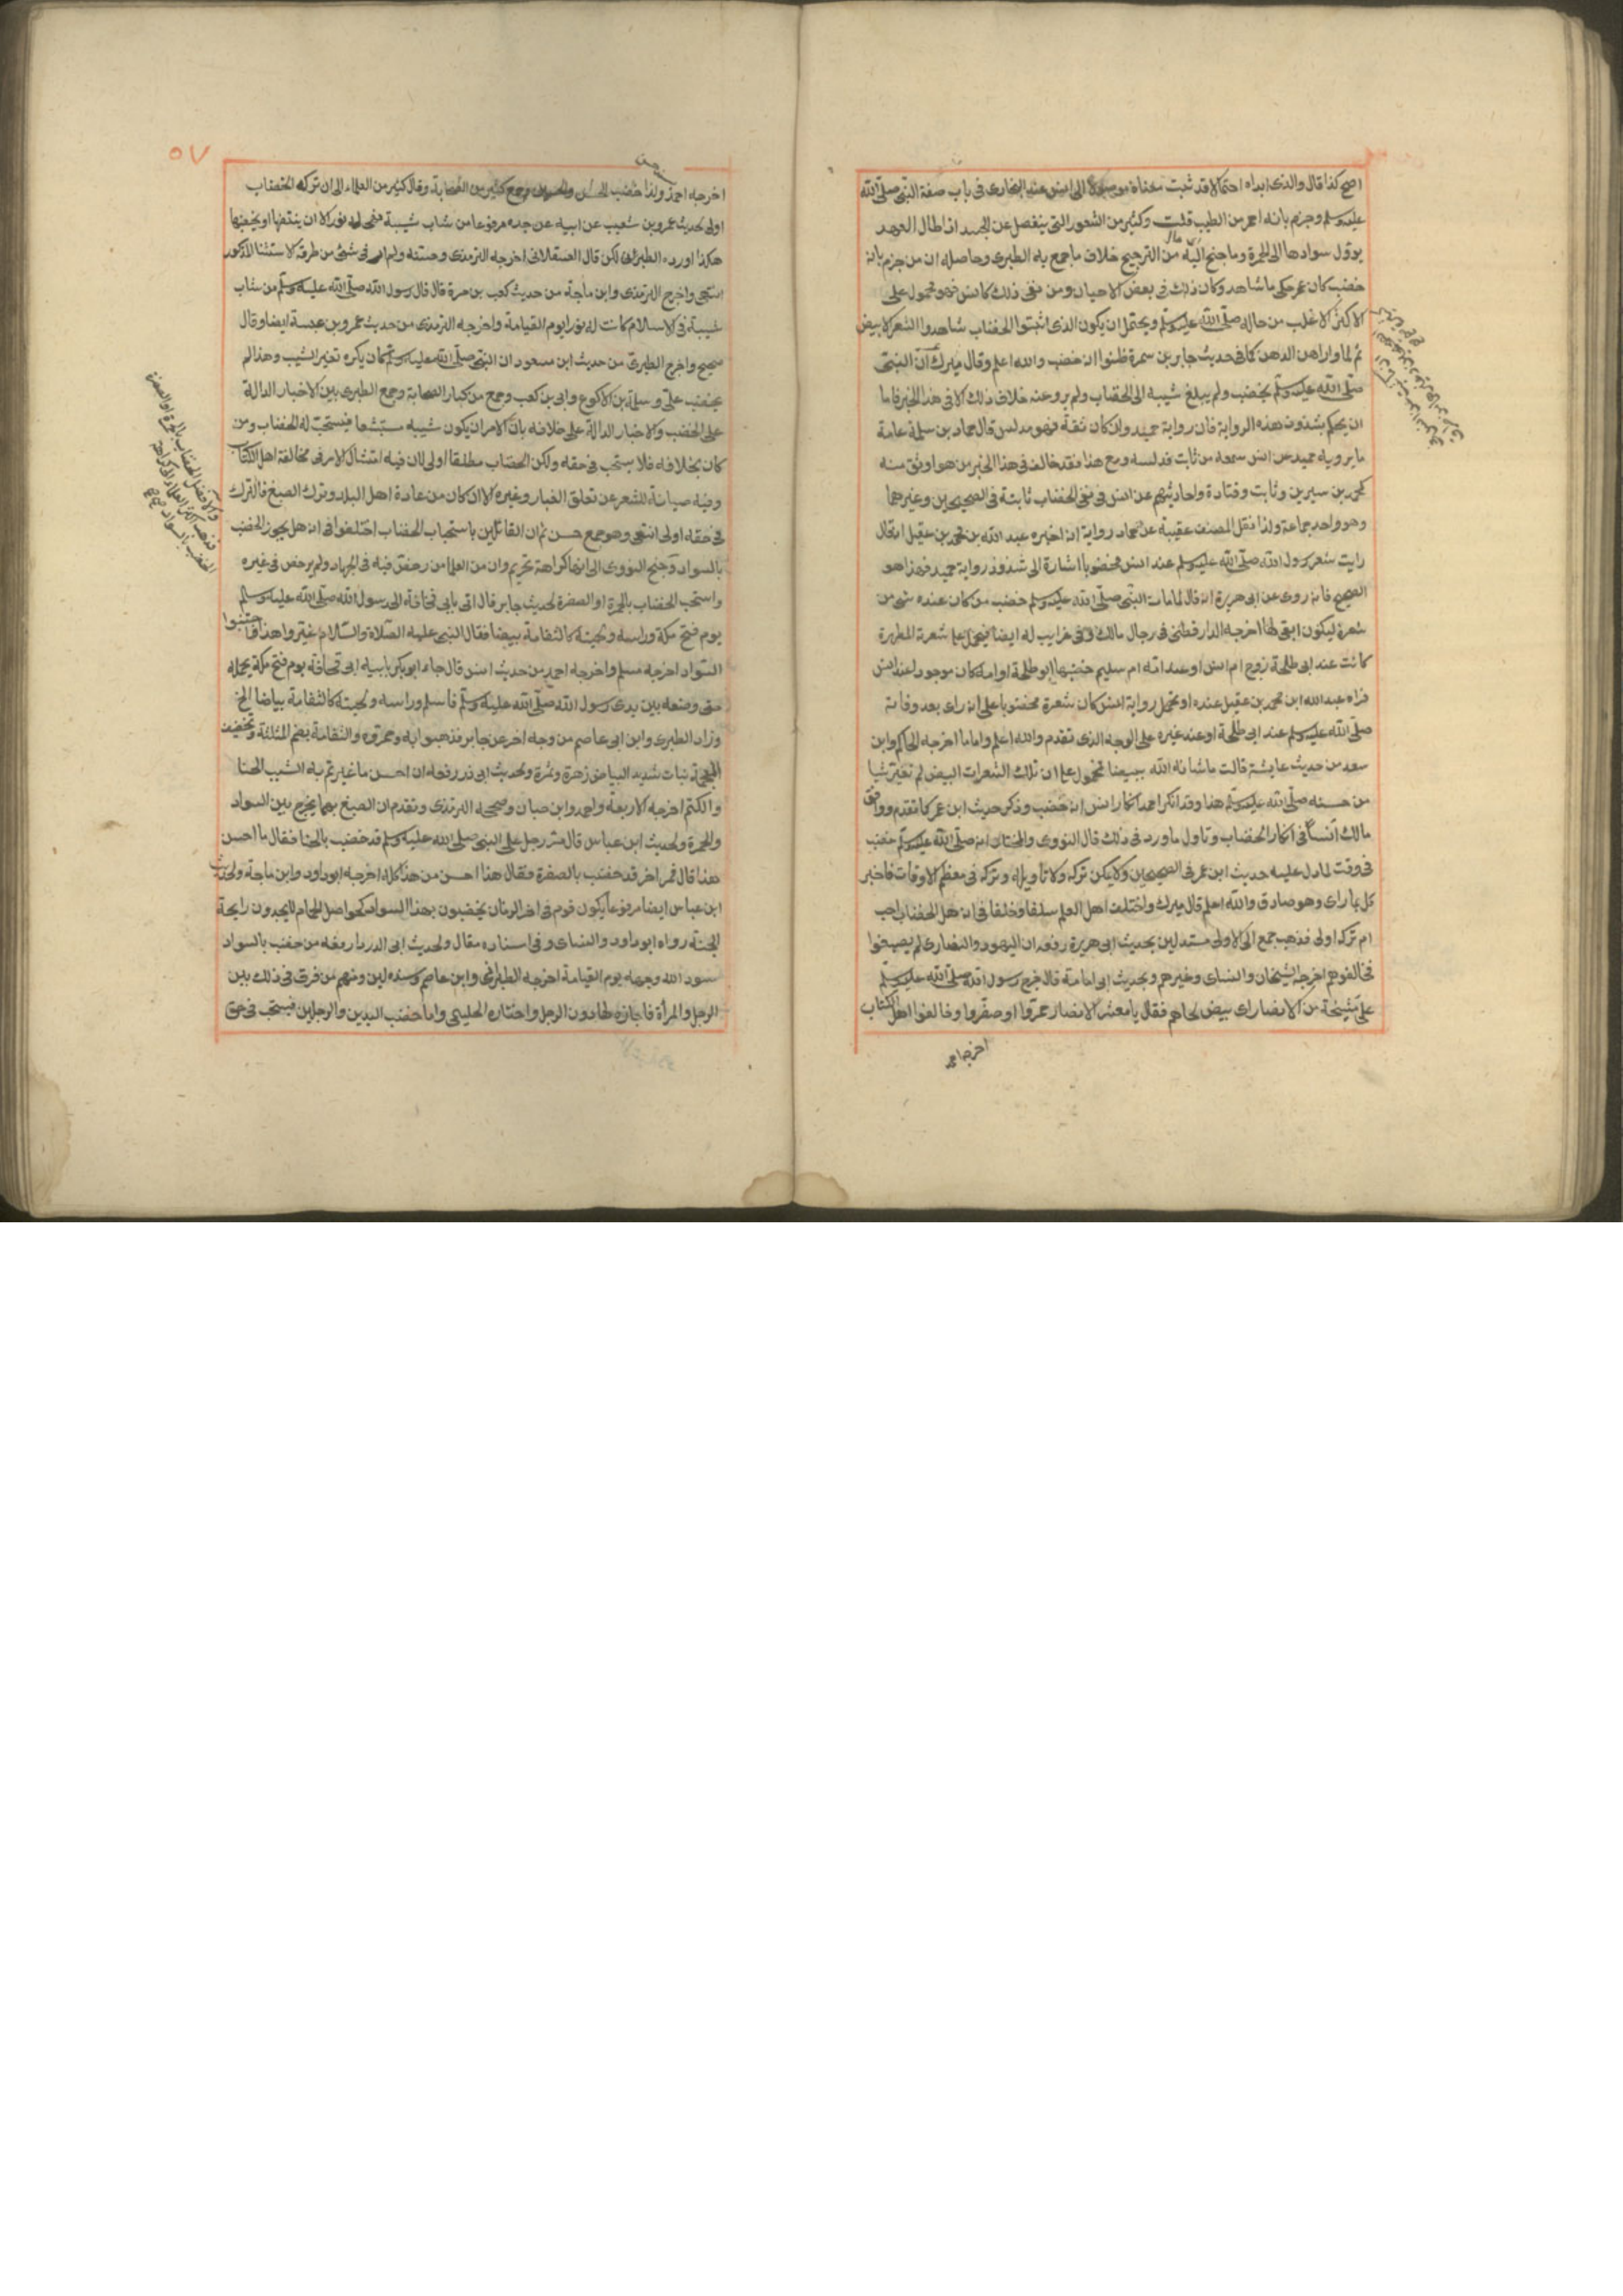 اصح كذا قال والذى ابداه احتمالا قد ثبت معناه موصولا الى انس عند البخارى فى باب صفة النبى صلى الله
عليه وسلم وجزم بانه احمر من الطيب قلت وكثير من الشعور التى ينفصل عن الجسد اذا طال العهد
يوول سوادها الى الحمرة وما جنح اليه من الترجيح خلاف ما جمع به الطبرى وحاصله ان من جزم بانه
خضب كابن عمر حكى ما شاهد وكان ذلك فى بعض الاحيان ومن نفى ذلك كانس فهو محمول على
الاكثر الاغلب من حاله صلى الله عليه وسلم ويحتمل ان يكون الذى اثبتوا الخضاب شاهدوا الشعر الابيض
ثم لما واراهن الدهن كما فى حديث جابر بن سمرة ظنوا انه خضب والله اعلم وقال ميرك ان النبى
صلى الله عليه وسلم لم يخضب ولم يبلغ شيبه الى الخضاب ولم يرو عنه خلاف ذلك الا فى هذا الخبر فاما
ان يحكم بشذوذ هذه الرواية فان رواية حميد وان كان ثقة فهو مدلس قال حماد بن سلمة عامة
ما يرويه حميد عن انس سمعه من ثابت فدلسه ومع هذا فقد خالف فى هذا الخبر من هو اوثق منه
كمحمد بن سيرين وثابت وقتادة واحاديثهم عن انس فى نفى الخضاب ثابتة فى الصحيحين وغيرهما
وهو واحد جماعة ولذا نقل المصنف عقيبه عن حماد رواية انه اخبره عبد الله بن محمد بن عقيل انه قال
رايت شعر رسول الله صلى الله عليه وسلم عند انس مخضوبا اشارة الى شذوذ رواية حميد فهذا هو
الصحيح فانه روى عن ابى هريرة انه قال لما مات النبى صلى الله عليه وسلم خضب من كان عنده شئ من
شعره ليكون ابقى لها اخرجه الدارقطنى فى رجال مالك وفى غرايب له ايضا فيحمل على شعرة المطهرة
كانت عند ابى طلحة زوج ام انس او عند امه ام سليم خضبها ابو طلحة او امه كان موجود لعند انس
فراه عبد الله ابن محمد بن عقيل عنده او تحمل رواية انس كان شعرة مخضوبا على انه راى بعد وفاته
صلى الله عليه وسلم عند ابى طلحة او عند غيره على الوجه الذى تقدم والله اعلم واما ما اخرجه الحاكم وابن
سعد من حديث عايشة قالت ما شانه الله ببيضا فمحمول على ان تلك الشعرات البيض لم تغير شيا
من حسنه صلى الله عليه وسلم هذا وقد انكر احمد انكار انس انه خضب وذكر حديث ابن عمر كما تقدم ووافق
مالك انسا فى انكار الخضاب وتاول ما ورد فى ذلك قال النووى والمختار انه صلى الله عليه وسلم خضب
فى وقت لما دل عليه حديث ابن عمر فى الصحيحين ولا يمكن تركه ولا تاويله وتركه فى معظم الاوقات فاخبر
كل بما راى وهو صادق والله اعلم قال ميرك واختلف اهل العلم سلفا وخلفا فى انه هل الخضاب احب
ام تركه اولى فذهب جمع الى الاولى مستدلين بحديث ابى هريرة رفعه ان اليهود والنصارى لم يصبغوا
فخالفوهم اخرجه الشيخان والنساى وغيرهم وبحديث ابى امامة قال خرج رسول الله صلى الله عليه وسلم
على مشيخة من الانصار اى بيض لحاهم فقال يا معشر الانصار حمروا او صفروا وخالفوا اهل الكتاب
اخرجه احمد
٥٧
اخرجه احمد ولذا خضب الحسن والحسين وجمع كثير من الصحابة وقال كثير من العلماء الى ان تركه الخضاب
اولى لحديث عمرو بن شعيب عن ابيه عن جده مرفوعا من شاب شيبة فهى له نور الا ان ينتفها او يخضبها
هكذا اورده الطبرانى لكن قال العسقلانى اخرجه الترمذى وحسنه ولم ار فى شئ من طرقه الاستثنا المذكور
انتهى واخرج الترمذى وابن ماجة من حديث كعب بن مرة قال قال رسول الله صلى الله عليه وسلم من شاب
شيبة فى الاسلام كانت له نورا يوم القيامة واخرجه الترمذى من حديث عمرو بن عبسة ايضا وقال
صحيح واخرج الطبرى من حديث ابن مسعود ان النبى صلى الله عليه وسلم كان يكره تغير الشيب وهذا لم
يخضب على وسلمة بن الاكوع وابى بن كعب وجمع من كبار الصحابة وجمع الطبرى بين الاخبار الدالة
على الخضب والاخبار الدالة على خلافه بان الامر ان يكون شيبه مستبشعا فيستحب له الخضاب ومن
كان بخلافه فلا يستحب فى حقه ولكن الخضاب مطلقا اولى لان فيه امتثال الامر فى مخالفة اهل الكتاب
وفيه صيانة للشعر عن تعلق الغبار وغيره الا ان كان من عادة اهل البلد وترك الصبغ فالترك
فى حقه اولى انتهى وهو جمع حسن ثم ان القائلين باستحباب الخضاب اختلفوا فى انه هل يجوز الخضب
بالسواد وجنح النووى الى انها كراهة تحريم وان من العلما من رخص فيه فى الجهاد ولم يرخص فى غيره
واستحب الخضاب بالحمرة او الصفرة لحديث جابر قال اتى بابى قحافة الى رسول الله صلى الله عليه وسلم
يوم فتح مكة وراسه ولحيته كالثغامة بيضا فقال النبى عليه الصلاة والسلام غيروا هذا واجتنبوا
السواد اخرجه مسلم واخرجه احمد من حديث انس قال جاء ابو بكر بابيه ابى قحافة يوم فتح مكة يحمله
حتى وضعه بين يدى رسول الله صلى الله عليه وسلم فاسلم وراسه ولحيته كالثغامة بياضا الخ
وزاد الطبرى وابن ابى عاصم من وجه اخر عن جابر فذهبوا به وحمروه والثغامة بضم المثلثة وتخفيف
المعجمة نبات شديد البياض زهرة وثمرة ولحديث ابى ذر رفعه ان احسن ما غيرتم به الشيب الحنا
والكتم اخرجه الاربعة واحمد وابن حبان وصححه الترمذى وتقدم ان الصبغ بهما يخرج بين السواد
والحمرة ولحديث ابن عباس قال مر رجل على النبى صلى الله عليه وسلم قد خضب بالحنا فقال ما احسن
هذا قال فمر اخر قد خضب بالصفرة فقال هذا احسن من هذا كله اخرجه ابو داود وابن ماجة ولحديث
ابن عباس ايضا مرفوعا يكون قوم فى اخر الزمان يخضبون بهذا السواد كحواصل الحمام لا يجدون رايحة
الجنة رواه ابو داود والنساى وفى اسناده مقال ولحديث ابى الدردا رفعه من خضب بالسواد
سود الله وجهه يوم القيامة اخرجه الطبرانى وابن عاصم وسنده لين ومنهم من فرق فى ذلك بين
الرجل والمرأة فاجازه لها دون الرجل واختاره الحليمى واما خضب اليدين والرجلين فيستحب فى حق